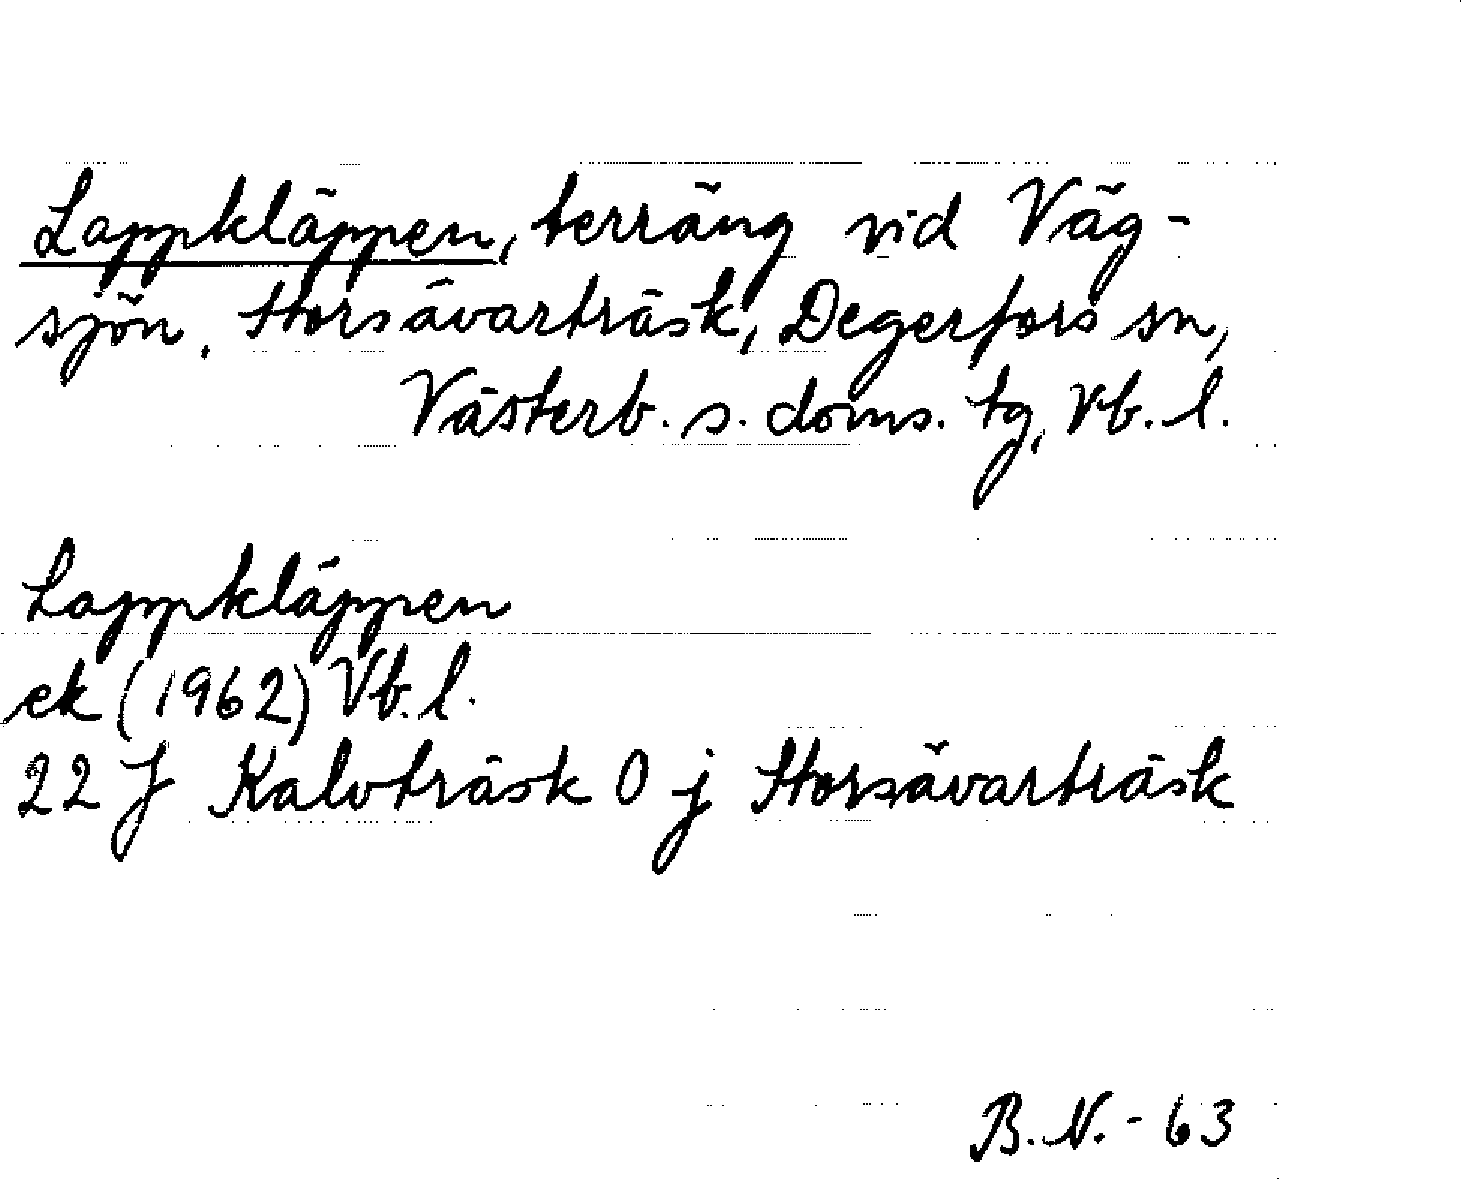 Lappkläppen, terräng vid Väg-
sjön. Storsävarträsk, Degerfors sn,
Västerb. s. doms. tg, Vb. l.
Lappkläppen
ek (1962) Vb. l.
22 J Kalvträsk 0 j Storsävarträsk
B. N. - 63